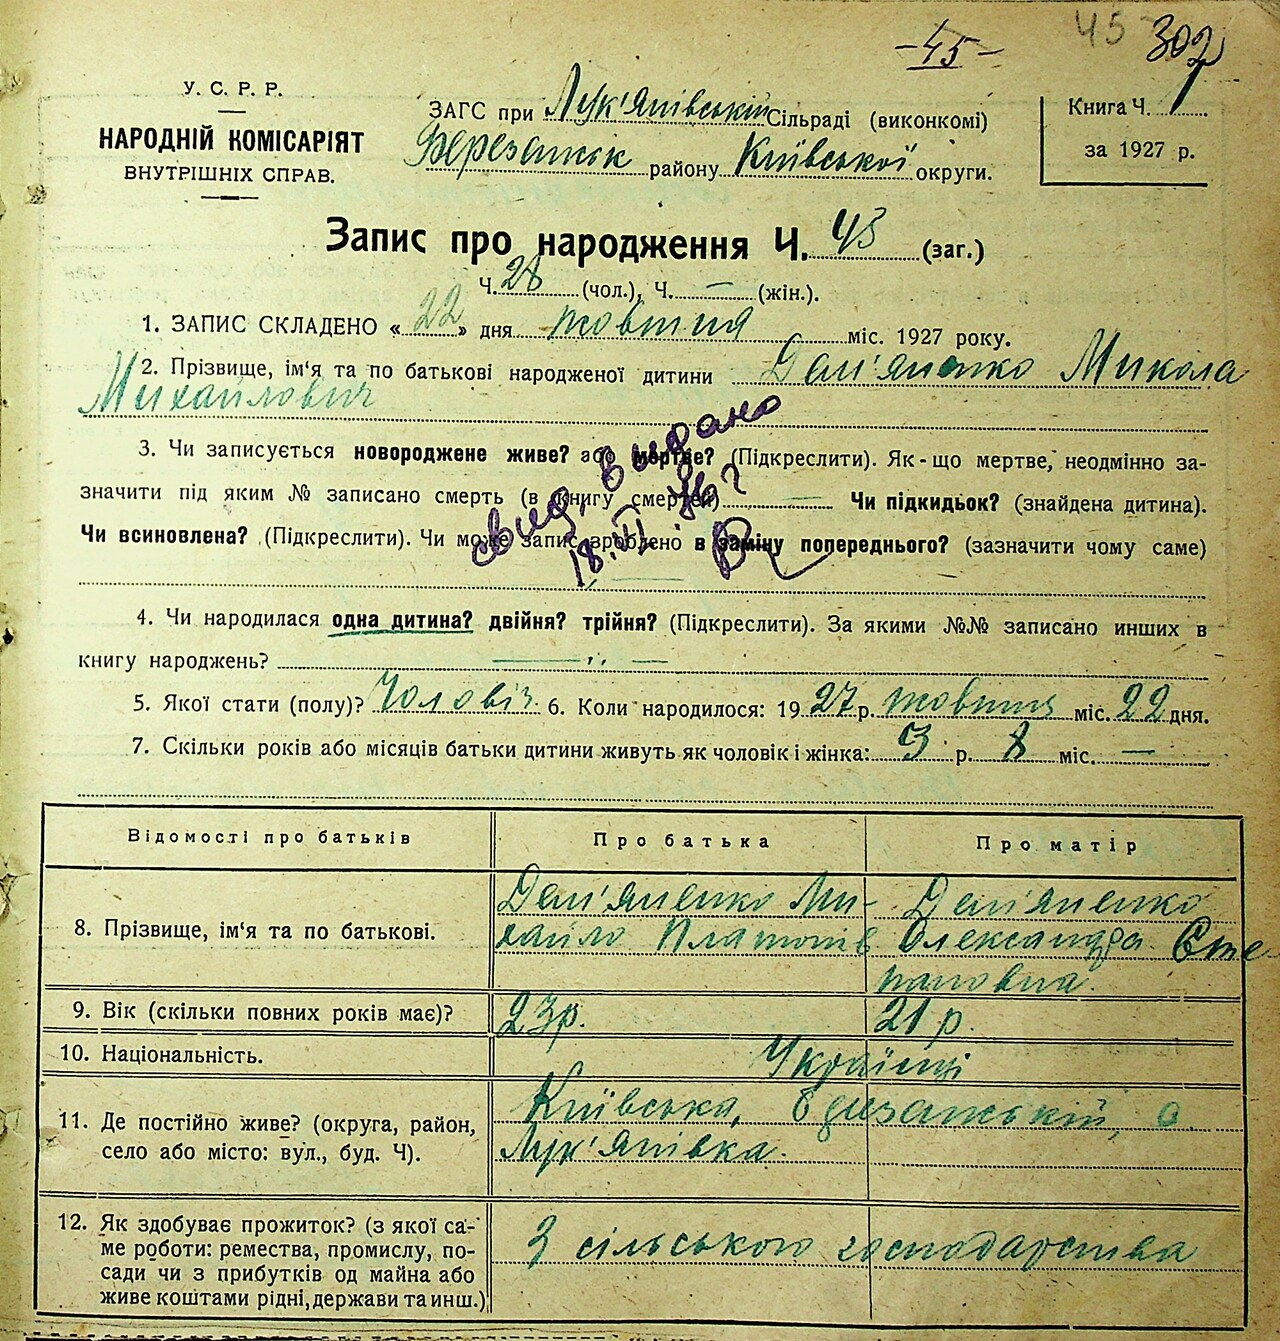 -45-
45
302
У. С. Р. Р.
НАРОДНІЙ КОМІСАРІЯТ
ВНУТРІШНІХ СПРАВ.
ЗАГС при Лук'янівській Сільраді (виконкомі)
Березанськ району Київської округи.
Книга Ч. 1
за 1927 р.
Запис про народження Ч. 45 (заг.)
Ч. 28 (чол.), Ч. — (жін.).
1. ЗАПИС СКЛАДЕНО «22» дня жовтня міс. 1927 року.
2. Прізвище, ім'я та по батькові народженої дитини Дем'яненко Микола
Михайлович
3. Чи записується новороджене живе? або мертве? (Підкреслити). Як-що мертве, неодмінно за-
значити під яким № записано смерть (в книгу смертей) — Чи підкидьок? (знайдена дитина).
Чи всиновлена? (Підкреслити). Чи може запис зроблено в заміну попереднього? (зазначити чому саме)
свид. выдано
18. VI
4. Чи народилася одна дитина? двійня? трійня? (Підкреслити). За якими №№ записано инших в
книгу народжень? — " —
5. Якої стати (полу)? Чоловіч. 6. Коли народилося: 1927 р. жовтня міс. 22 дня.
7. Скільки років або місяців батьки дитини живуть як чоловік і жінка: 3 р. 8 міс. —
Відомості про батьків
Про батька
Про матір
8. Прізвище, ім'я та по батькові.
Дем'яненко Ми-
хайло Платонів
Дем'яненко
Олександра Сте
пановна.
9. Вік (скільки повних років має)?
23 р.
21 р.
10. Національність.
Українці
11. Де постійно живе? (округа, район,
село або місто: вул., буд. Ч).
Київська, Березанській, с.
Лук'янівка.
12. Як здобуває прожиток? (з якої са-
ме роботи: ремества, промислу, по-
сади чи з прибутків од майна або
живе коштами рідні, держави та инш.)
З сільського господарства